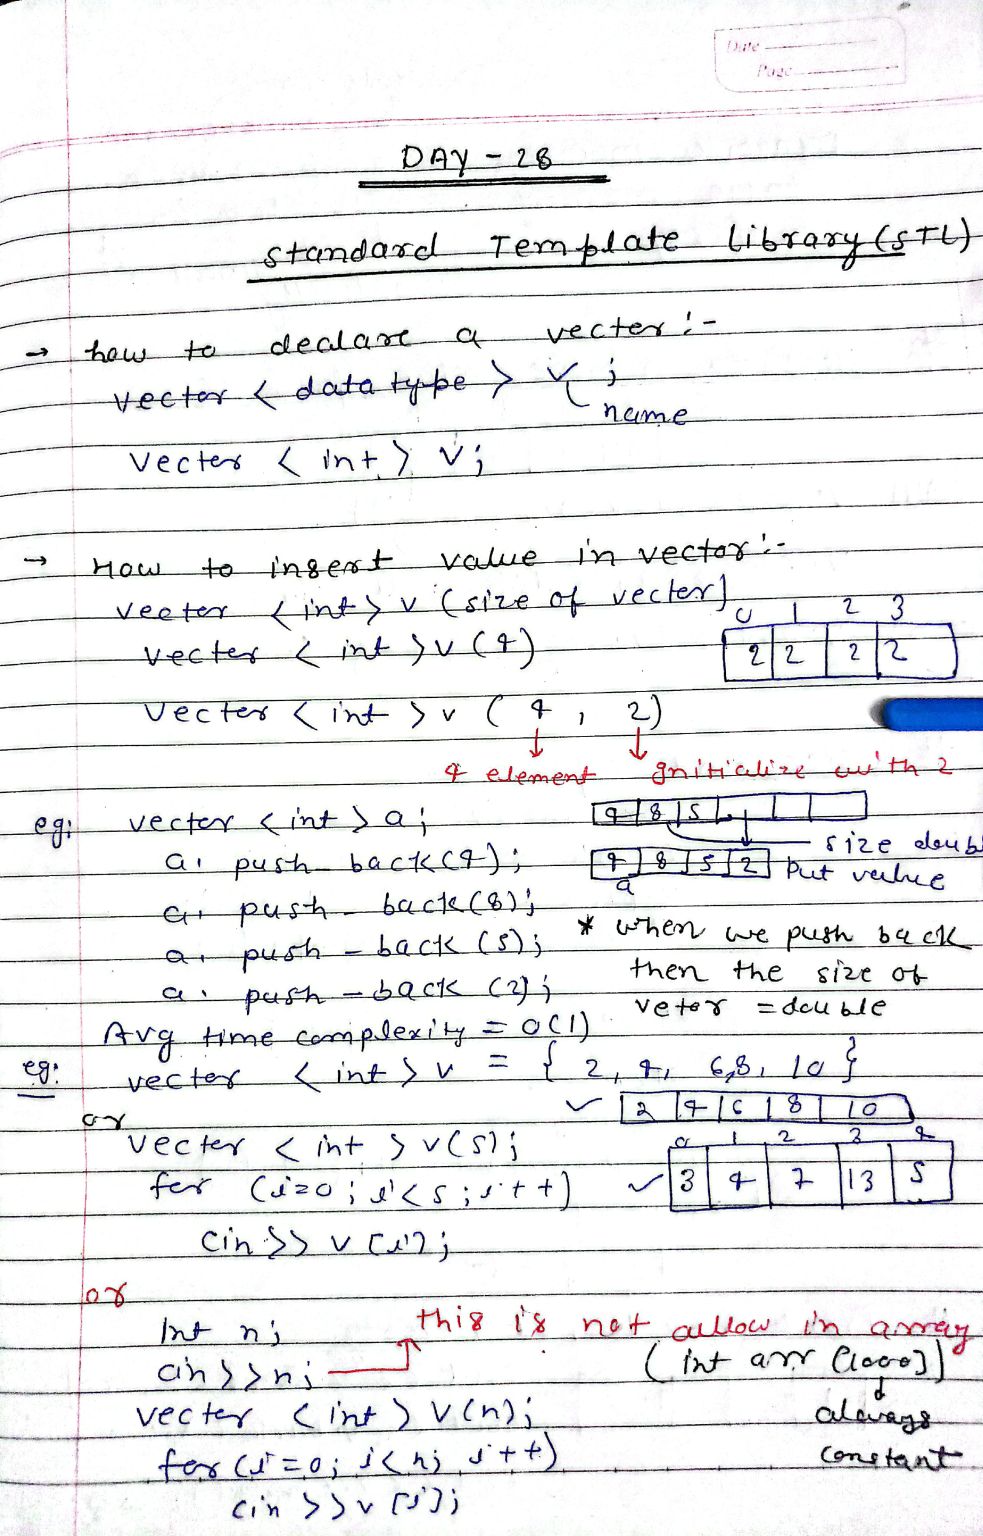 Date
Page
DAY - 28
Standard Template Library (STL)
→ how to dealare a vecter :-
vector < data type > v ;
name
Vecter < int > v;
→ How to insert value in vector :-
vecter < int > v (size of vecter)
0 1 2 3
vecter < int > v (4)
2 2 2 2
Vecter < int > v ( 4 , 2)
↓ ↓
4 element Initialize with 2
eg: vector < int > a ;
4 8 5
a. push_back(4);
size doubl
4 8 5 2 Put value
a
a. push_back(8);
a. push_back(5);
* when we push back
a. push_back (2);
then the size of
vetor = double
Avg time complexity = O(1)
eg: vecter < int > v = { 2, 4, 6, 8, 10 }
✓ 2 4 6 8 10
or
vecter < int > v(5);
0 1 2 3 4
for (i=0 ; i<5 ; i++)
✓ 3 4 7 13 5
cin >> v [i];
or
Int n;
this is not allow in array
cin >> n;
(int arr [1000])
↓
vecter < int > v(n);
always
for (i=0; i<n; i++)
constant
cin >> v [i];